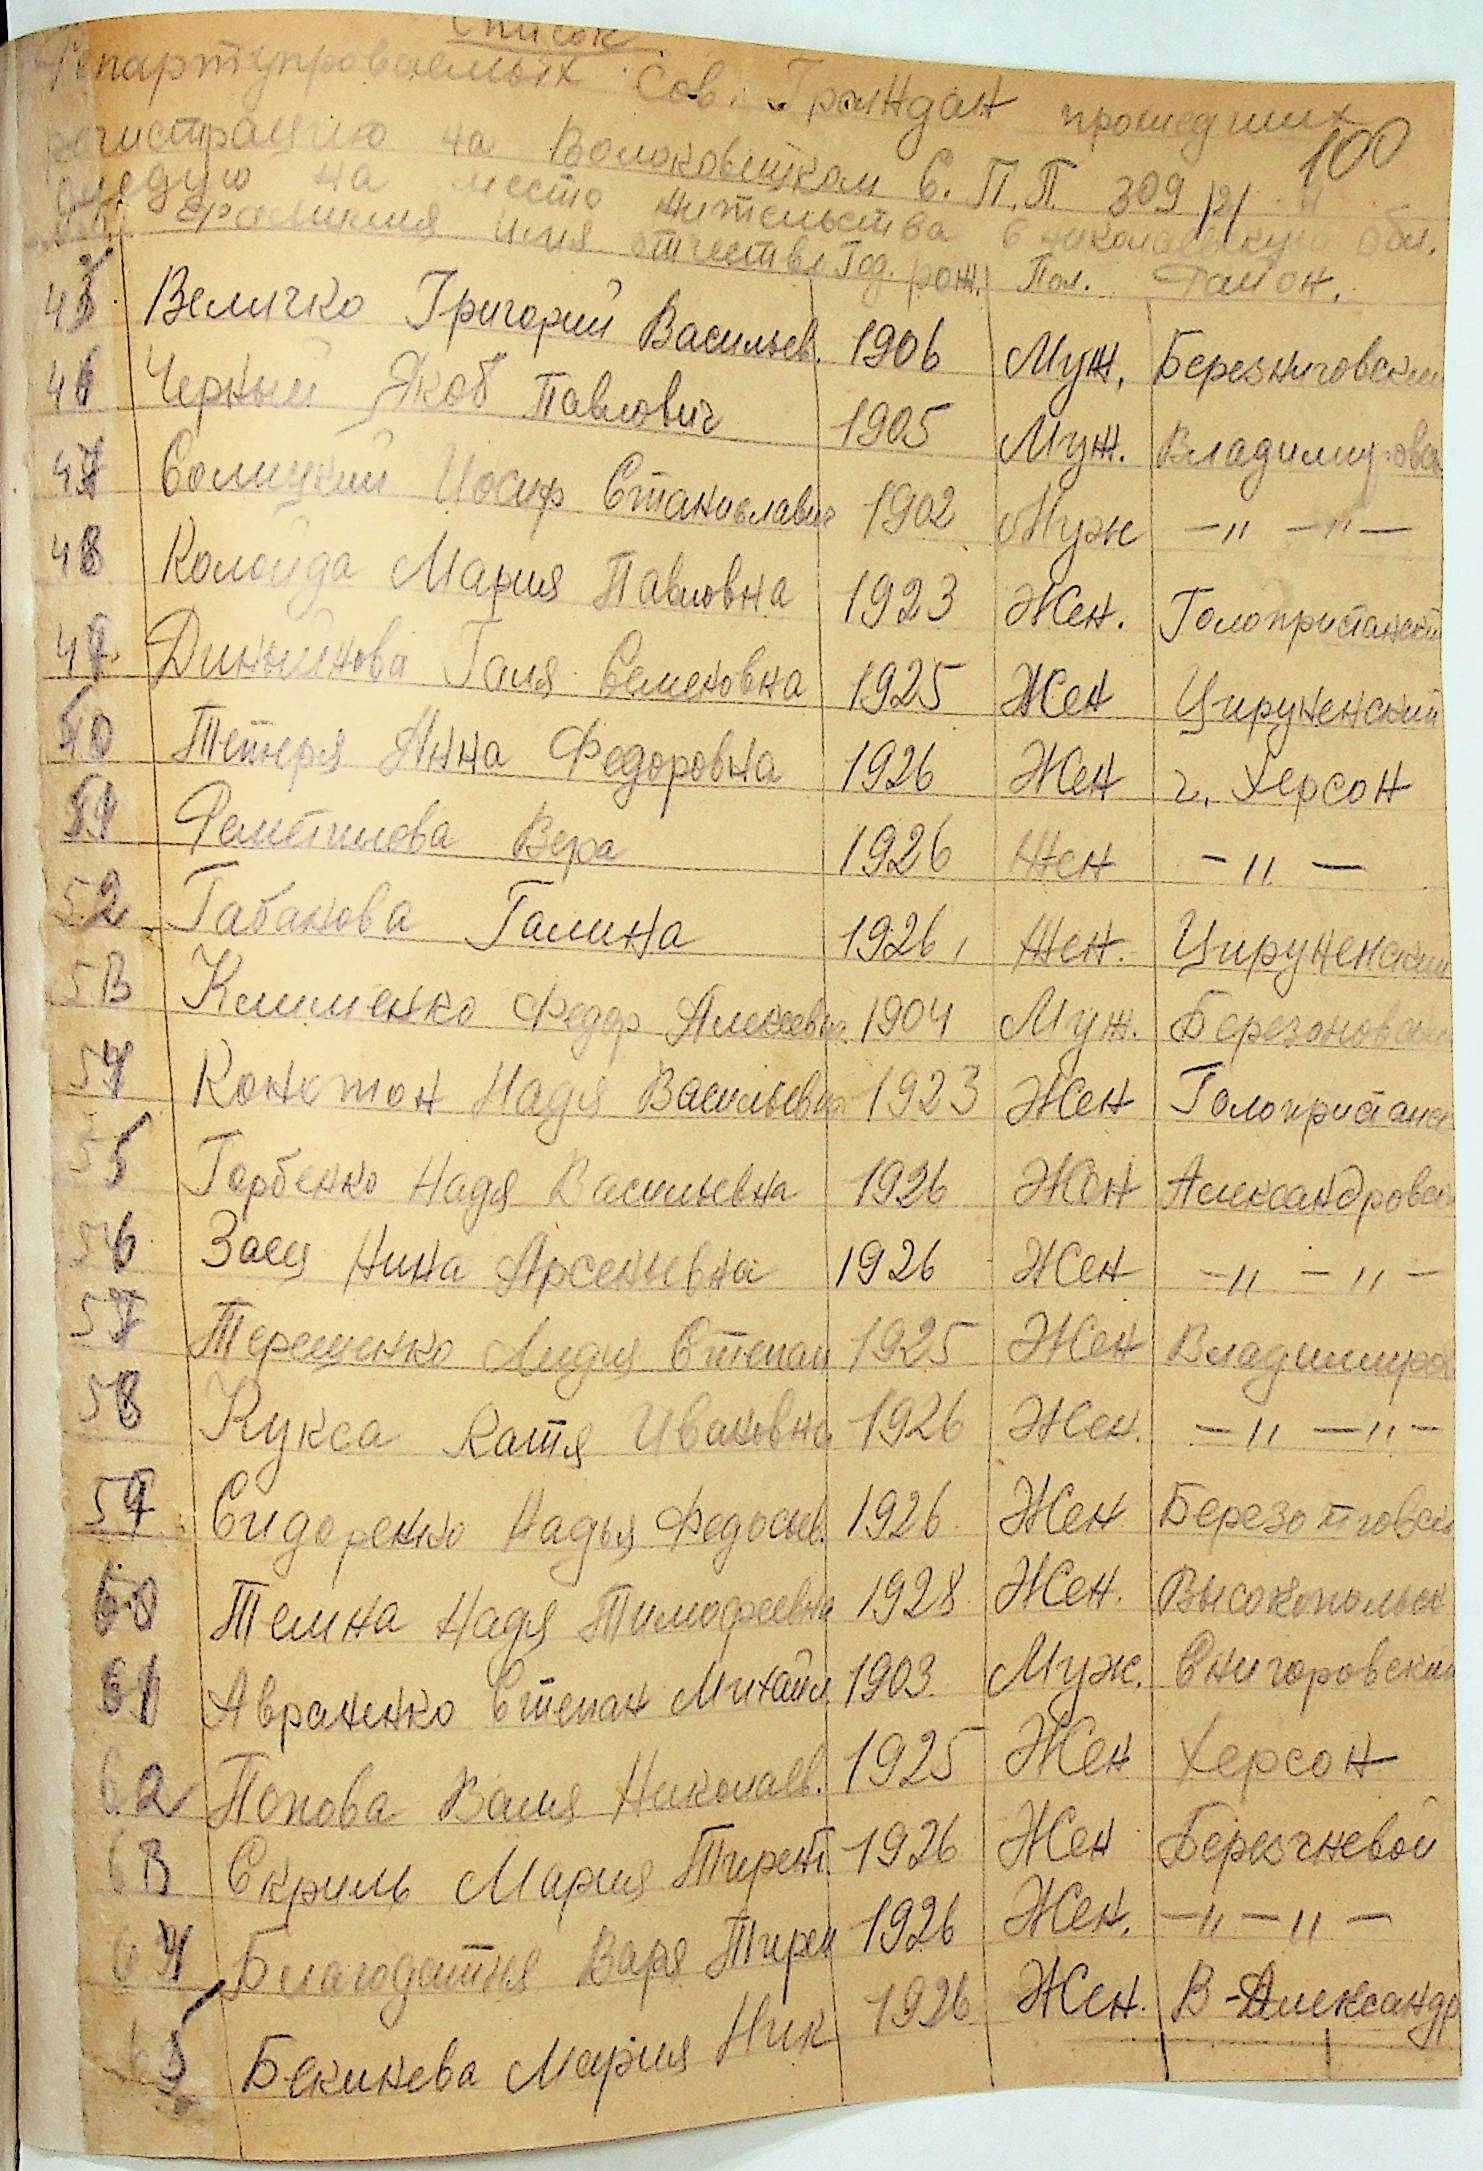 Список
Репартируемых Сов. Граждан прошедших
100
регистрацию на Волоковиском С. П. П. 309 /2/
следую на место жительства в Николаевскую обл.
Фамилия имя отчество Год. рож. Пол. Район.
45 Величко Григорий Васильев. 1906 Муж. Березниговский
46 Черный Якоб Павлович 1905 Муж. Владимирова
47 Солицкий Иосиф Станиславич 1902 Муж —"—"—
48 Коломида Мария Павловна 1923 Жен. Голопристанский
49 Галя Семеновна 1925 Жен Цируненский
50 Тетеря Анна Федоровна 1926 Жен г. Херсон
51 Вера 1926 Жен —"—
52 Габанова Галина 1926, Жен. Цируненский
53 Клименко Федор Алексеевич 1904 Муж.
54 Конотон Надя Васильевна 1923 Жен Голопристанс
55 Горбенко Надя Васильевна 1926 Жен Александровск
56 Заец Нина Арсеньевна 1926 Жен —"—"—
57 Терещенко Лидия Степан 1925 Жен Владимиров
58 Кукса Катя Ивановна 1926 Жен. —"—"—
59 Сидоренко Надья Федосьев. 1926 Жен
60 Темна Надя Тимофеевна 1928 Жен. Высокопольск
61 Авраненко Степан Михайл. 1903 Муж. Снигоровский
62 Попова Валя Николаев. 1925 Жен Херсон
63 Скриль Мария Тирент. 1926 Жен
64 Благодатняя Варя Тирен 1926 Жен. —"—"—
65 Бекинева Мария Ник 1926 Жен. В-Александр